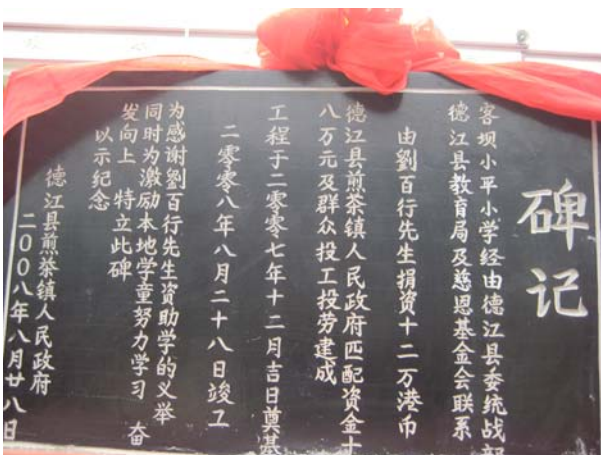 碑记
客坝小平小学经由德江县委统战部
德江县教育局及慈恩基金会联系
由劉百行先生捐资十二万港币
德江县煎茶镇人民政府匹配资金十
八万元及群众投工投劳建成
工程于二零零七年十二月吉日奠基
二零零八年八月二十八日竣工
为感谢劉百行先生资助学的义举
同时为激励本地学童努力学习 奋
发向上 特立此碑
以示纪念
德江县煎茶镇人民政府
二00八年八月廿八日